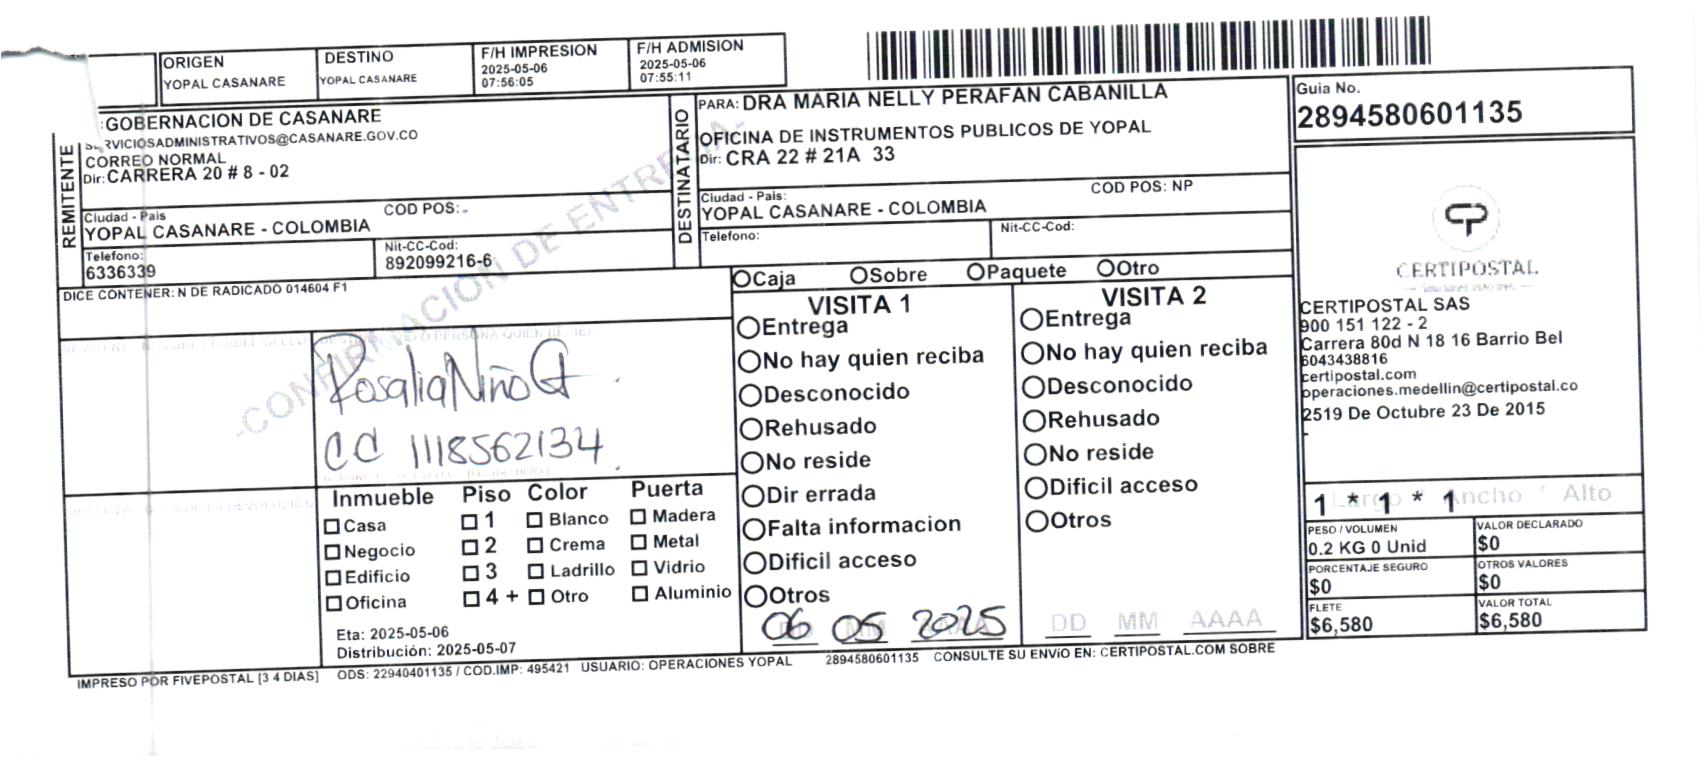 ORIGEN
YOPAL CASANARE
DESTINO
YOPAL CASANARE
F/H IMPRESION
2025-05-06
07:56:05
F/H ADMISION
2025-05-06
07:55:11
REMITENTE
:GOBERNACION DE CASANARE
SERVICIOSADMINISTRATIVOS@CASANARE.GOV.CO
CORREO NORMAL
Dir: CARRERA 20 # 8 - 02
Ciudad - Pais
COD POS:-
YOPAL CASANARE - COLOMBIA
Telefono:
6336339
Nit-CC-Cod:
892099216-6
DICE CONTENER: N DE RADICADO 014604 F1
DESTINATARIO
PARA: DRA MARIA NELLY PERAFAN CABANILLA
OFICINA DE INSTRUMENTOS PUBLICOS DE YOPAL
Dir: CRA 22 # 21A 33
COD POS: NP
Ciudad - Pais:
YOPAL CASANARE - COLOMBIA
Telefono:
Nit-CC-Cod:
Guia No.
2894580601135
-CONFIRMACION DE ENTREGA-
Rosalia Niño G
CC 1118562134
Inmueble Piso Color Puerta
Casa 1 Blanco Madera
Negocio 2 Crema Metal
Edificio 3 Ladrillo Vidrio
Oficina 4 + Otro Aluminio
Eta: 2025-05-06
Distribución: 2025-05-07
Caja Sobre Paquete Otro
VISITA 1
Entrega
No hay quien reciba
Desconocido
Rehusado
No reside
Dir errada
Falta informacion
Dificil acceso
Otros
DD MM AAAA
06 05 2025
VISITA 2
Entrega
No hay quien reciba
Desconocido
Rehusado
No reside
Dificil acceso
Otros
DD MM AAAA
CERTIPOSTAL
CERTIPOSTAL SAS
900 151 122 - 2
Carrera 80d N 18 16 Barrio Bel
6043438816
certipostal.com
operaciones.medellin@certipostal.co
2519 De Octubre 23 De 2015
-
Largo * Ancho * Alto
1 * 1 * 1
PESO / VOLUMEN
0.2 KG 0 Unid
VALOR DECLARADO
$0
PORCENTAJE SEGURO
$0
OTROS VALORES
$0
FLETE
$6,580
VALOR TOTAL
$6,580
IMPRESO POR FIVEPOSTAL [3 4 DIAS] ODS: 22940401135 / COD.IMP: 495421 USUARIO: OPERACIONES YOPAL 2894580601135 CONSULTE SU ENVíO EN: CERTIPOSTAL.COM SOBRE